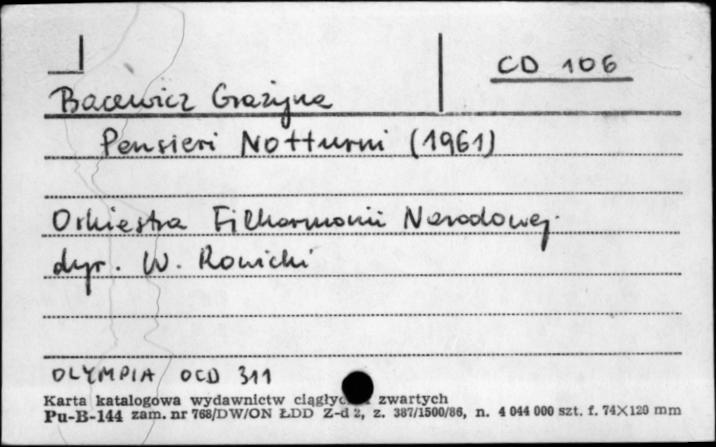 CD 106
Bacewicz Grażyna
Pensieri Notturni (1961)
Orkiestra Filharmonii Narodowej.
dyr. W. Rowicki
OLYMPIA OCD 311
Karta katalogowa wydawnictw zwartych
Pu-B-144 zam. nr 768/DW/ON ŁDD Z-d 2, z. 387/1500/86, n. 4 044 000 szt. f. 74X120 mm